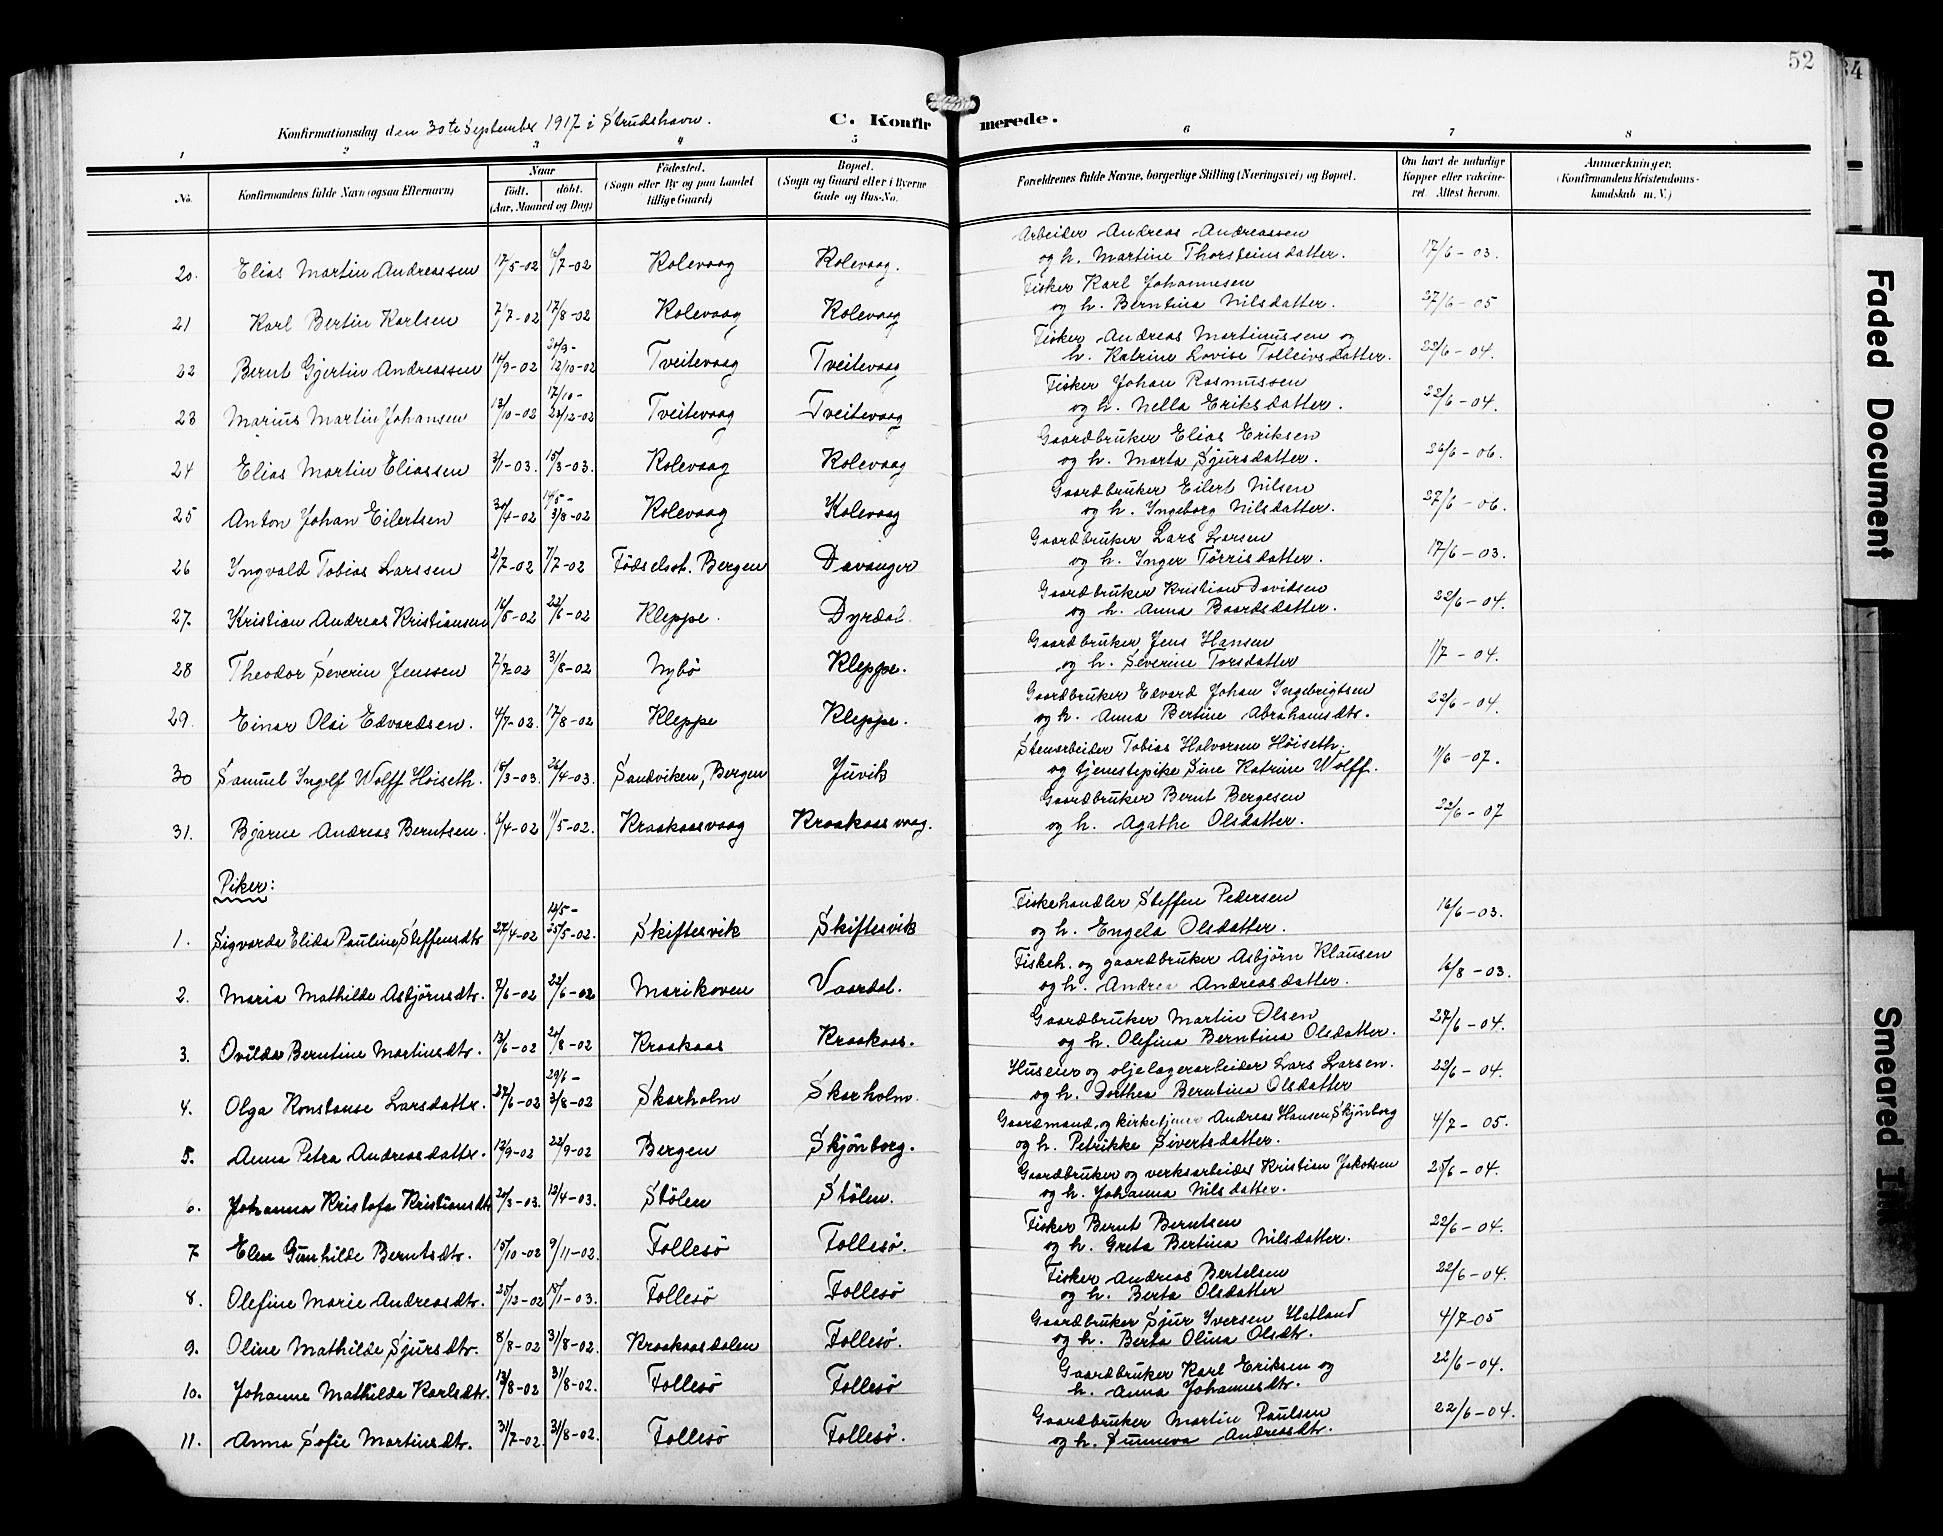 52
34
Konfirmationsdag den 30te September 1917 i Strudshavn. C. Konfirmerede.
1 2 3 4 5 6 7 8
No. Konfirmandens fulde Navn (ogsaa Efternavn) Naar født. døbt. (Aar, Maaned og Dag) Fødested. (Sogn eller By og paa Landet tillige Gaard) Bopæl. (Sogn og Gaard eller i Byerne Gade og Hus-No. Forældrenes fulde Navne, borgerlige Stilling (Næringsvei) og Bopæl. Om havt de naturlige Kopper eller vakcineret. Attest herom. Anmærkninger. (Konfirmandens Kristendomskundskab m. V.)
20. Elias Martin Andreassen 17/5-02 /7-02 Kolevaag Kolevaag. Arbeider Andreas Andreassen og h. Martine Thorsteinsdatter. 17/6-03.
21 Karl Bertin Karlsen 7/7-02 17/8-02 Kolevaag Kolevaag Fisker Karl Johannesen og h. Berntina Nilsdatter. 27/6-05
22 Bernt Gjertin Andreassen 14/9-02 20/9-12/10-02 Tveitevaag Tveitevaag Fisker Andreas Martinussen og h. Katrine Lovise Tolleivsdatter. 22/6-04.
23 Marius Martin Johansen 13/10-02 17/10-28/12-02 Tveitevaag Tveitevaag Fisker Johan Rasmussen og h. Nella Eriksdatter. 22/6-04.
24 Elias Martin Eliassen 3/1-03. 15/3-03. Kolevaag Kolevaag Gaardbruker Elias Eriksen og h. Marta Sjursdatter. 26/6-06.
25 Anton Johan Eilertsen 30/4-02 14/5-3/8-02 Kolevaag Kolevaag Gaardbruker Eilert Nilsen og h. Ingeborg Nilsdatter. 27/6-06.
26 Ingvald Tobias Larssen 2/7-02 7/7-02 Fødselsst. Bergen Davanger Gaardbruker Lars Larsen og h. Inger Tørrisdatter. 17/6-03.
27. Kristian Andreas Kristiansen 16/5-02 22/6-02 Kleppe. Dyrdal. Gaardbruker Kristian Davidsen og h. Anna Baardsdatter. 22/6-04.
28 Theodor Severin Jenssen 7/7-02 31/8-02 Nybø Kleppe. Gaardbruker Jens Hansen og h. Severine Torsdatter 1/7-04.
29. Einar Olai Edvardsen. 4/7-02. 17/8-02 Kleppe Kleppe. Gaardbruker Edvard Johan Ingebrigtsen og h. Anna Bertine Abrahamsdtr. 22/6-04.
30 Samuel Ingolf Wolff Høiseth. 18/3-03. 26/4-03. Sandviken, Bergen Juvik Stenarbeider Tobias Halvorsen Høiseth. og tjenestepike Sine Katrine Wolff. 11/6-07.
31. Bjarne Andreas Berntsen. /4-02 11/5-02. Kraakaasvaag Kraakaasvaag. Gaardbruker Bernt Bergesen og h. Agathe Olsdatter. 22/6-07
Piker:
1. Sigvarda Elida Pauline Steffensdtr 27/4-02 14/5-25/5-02. Skiftesvik Skiftesvik Fiskehandler Steffen Pedersen og h. Engela Olsdatter. 16/6-03.
2. Maria Mathilde Asbjørnsdtr. 7/6-02 22/6-02 Marikoven Vaardal. Fiskeh. og gaardbruker Asbjørn Klausen og h. Andrea Andreasdatter. 16/8-03.
3. Ovilda Berntine Martinsdtr. 13/6-02 24/8-02 Kraakaas Kraakaas. Gaardbruker Martin Olsen og h. Olefina Berntina Olsdatter. 27/6-04.
4. Olga Konstanse Larsdatter. 27/6-02 29/6-3/8-02 Skarholm Skarholm. Huseier og oljelagerarbeider Lars Larsen. og h. Dorthea Berntina Olsdatter 22/6-04.
5. Anna Petra Andreasdatter. 12/9-02 22/9-02 Bergen Skjønborg. Gaardmand, og kirketjener Andreas Hansen Skjønborg og h. Petrikke Sivertsdatter. 4/7-05.
6. Johanna Kristofa Kristiansdtr 2/3-03. 12/4-03. Stølen Stølen. Gaardbruker og verksarbeider Kristian Jakobsen og h. Johanna Nilsdatter. 25/6-04.
7 Elen Gunhilde Berntsdtr. 15/10-02 9/11-02. Follesø Follesø. Fisker Bernt Berntsen og h. Greta Bertina Nilsdatter. 22/6-04.
8. Olefine Marie Andreasdtr. 25/12-02 18/1-03. Follesø Follesø Fisker Andreas Bertelsen og h. Berta Olsdatter 22/6-04.
9. Oline Mathilde Sjursdtr. 8/8-02 31/8-02. Kraakaasdalen Follesø. Gaardbruker Sjur Iversen Hatland og h. Berta Olina Olsdtr. 4/7-05
10. Johanne Mathilda Karlsdtr. 13/8-02 31/8-02. Follesø Follesø Gaardbruker Karl Eriksen og h. Anna Johannesdtr. 22/6-04.
11. Anna Sofie Martinsdtr. 31/7-02. 31/8-02. Follesø Follesø. Gaardbruker Martin Paulsen og h. Sunneva Andreasdtr. 22/6-04.
Faded Document
Smeared Ink